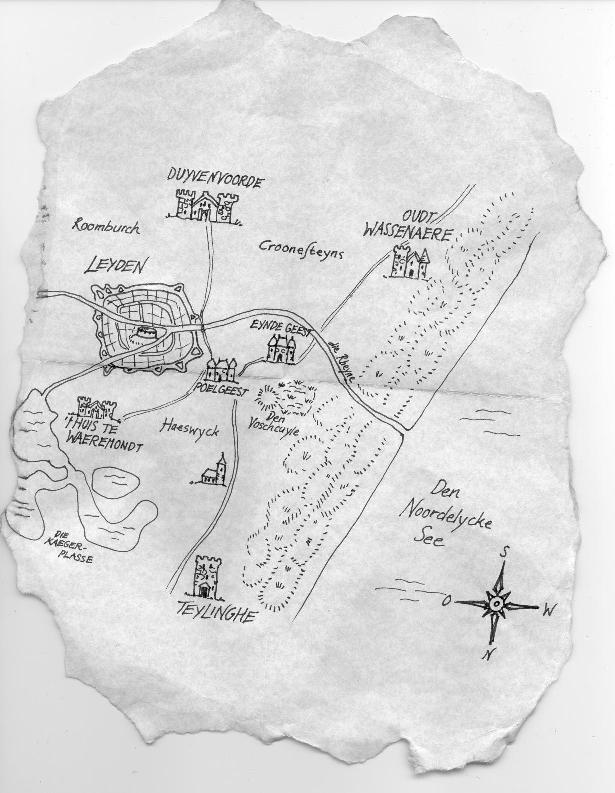 DUYVENVOORDE
Roomburch
Croonesteyns
OUDT
WASSENAERE
LEYDEN
EYNDE GEEST
die Rheyne
POELGEEST
'THUIS TE
WAEREMONDT
Haeswyck
Den
Voschcuyle
DIE
KAEGER-
PLASSE
Den
Noordelycke
See
TEYLINGHE
S
O
W
N